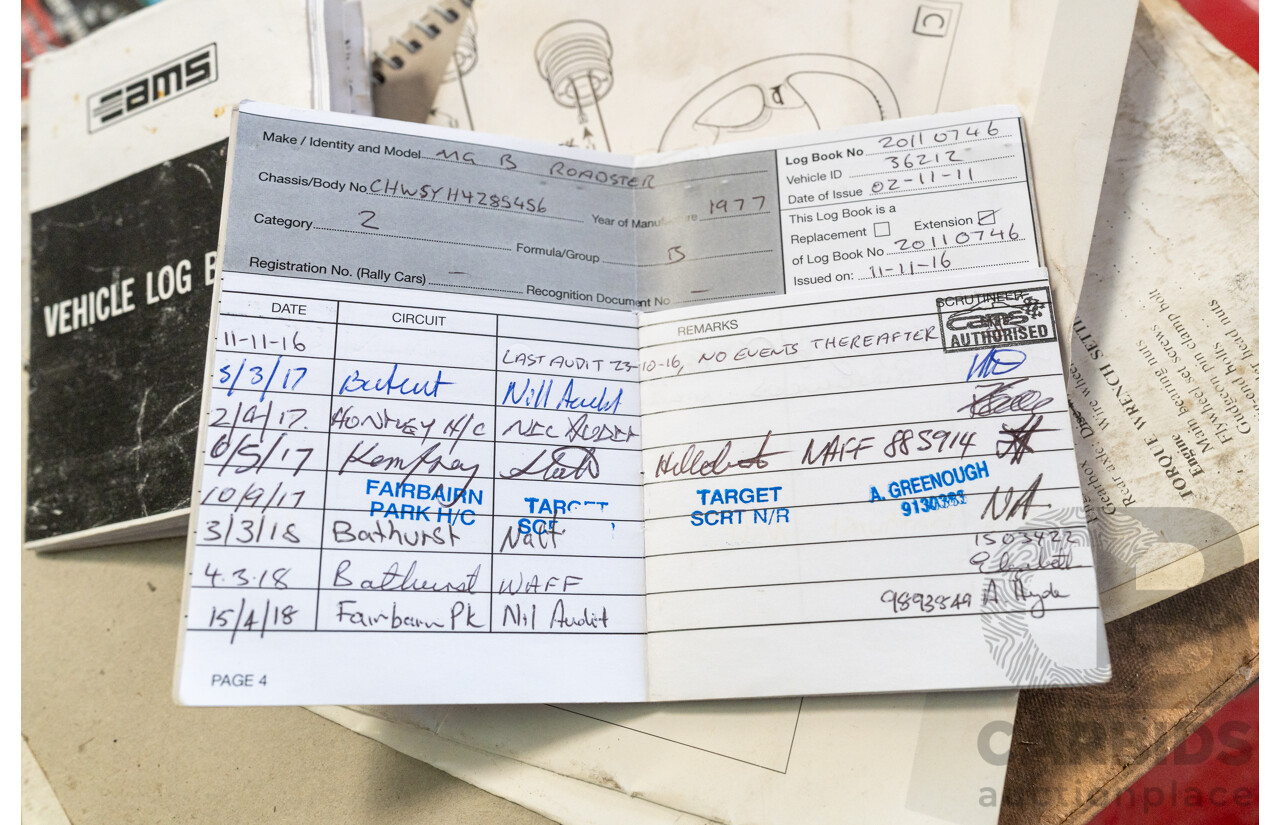 CAMS
VEHICLE LOG B
C
Make / Identity and Model MG B ROADSTER
Chassis/Body No CHW5YH4285456 Year of Manu re 1977
Category 2 Formula/Group B
Registration No. (Rally Cars) — Recognition Document No —
Log Book No 20110746
Vehicle ID 36212
Date of Issue 02-11-11
This Log Book is a
Replacement Extension
of Log Book No 20110746
Issued on: 11-11-16
DATE CIRCUIT REMARKS SCRUTINEER
CAMS
AUTHORISED
11-11-16 LAST AUDIT 23-10-16, NO EVENTS THEREAFTER
5/3/17 Nill Audit
2/4/17. H/C
6/5/17 NAFF 885914
10/9/17 FAIRBAIRN PARK H/C TARGET TARGET SCRT N/R A. GREENOUGH
3/3/18 Bathurst Naff 1503422
4.3.18 Bathurst WAFF Elizabeth
15/4/18 Fairbarn Pk Nil Audit 9893849 A Hyde
PAGE 4
TORQUE WRENCH SETTI
Engine
Main bearing nuts
Flywheel set screws
Gudgeon pin clamp bolt
Gearbox
Rear axle
Wire whee
CARBIDS
auctionplace